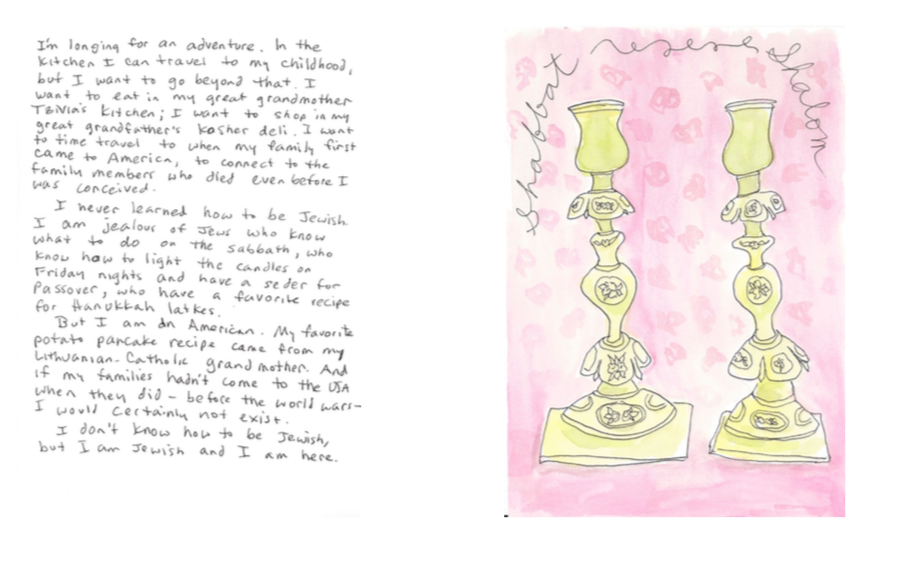 I'm longing for an adventure. In the
kitchen I can travel to my childhood,
but I want to go beyond that. I
want to eat in my great grandmother
TZIVIA's kitchen; I want to shop in my
great grandfather's kosher deli. I want
to time travel to when my family first
came to America, to connect to the
family members who died even before I
was conceived.
I never learned how to be Jewish.
I am jealous of Jews who know
what to do on the sabbath, who
know how to light the candles on
Friday nights and have a seder for
Passover, who have a favorite recipe
for Hanukkah latkes.
But I am an American. My favorite
potato pancake recipe came from my
Lithuanian-Catholic grandmother. And
if my families hadn't come to the USA
when they did - before the world wars-
I would certainly not exist.
I don't know how to be Jewish,
but I am Jewish and I am here.
shabbat
shalom